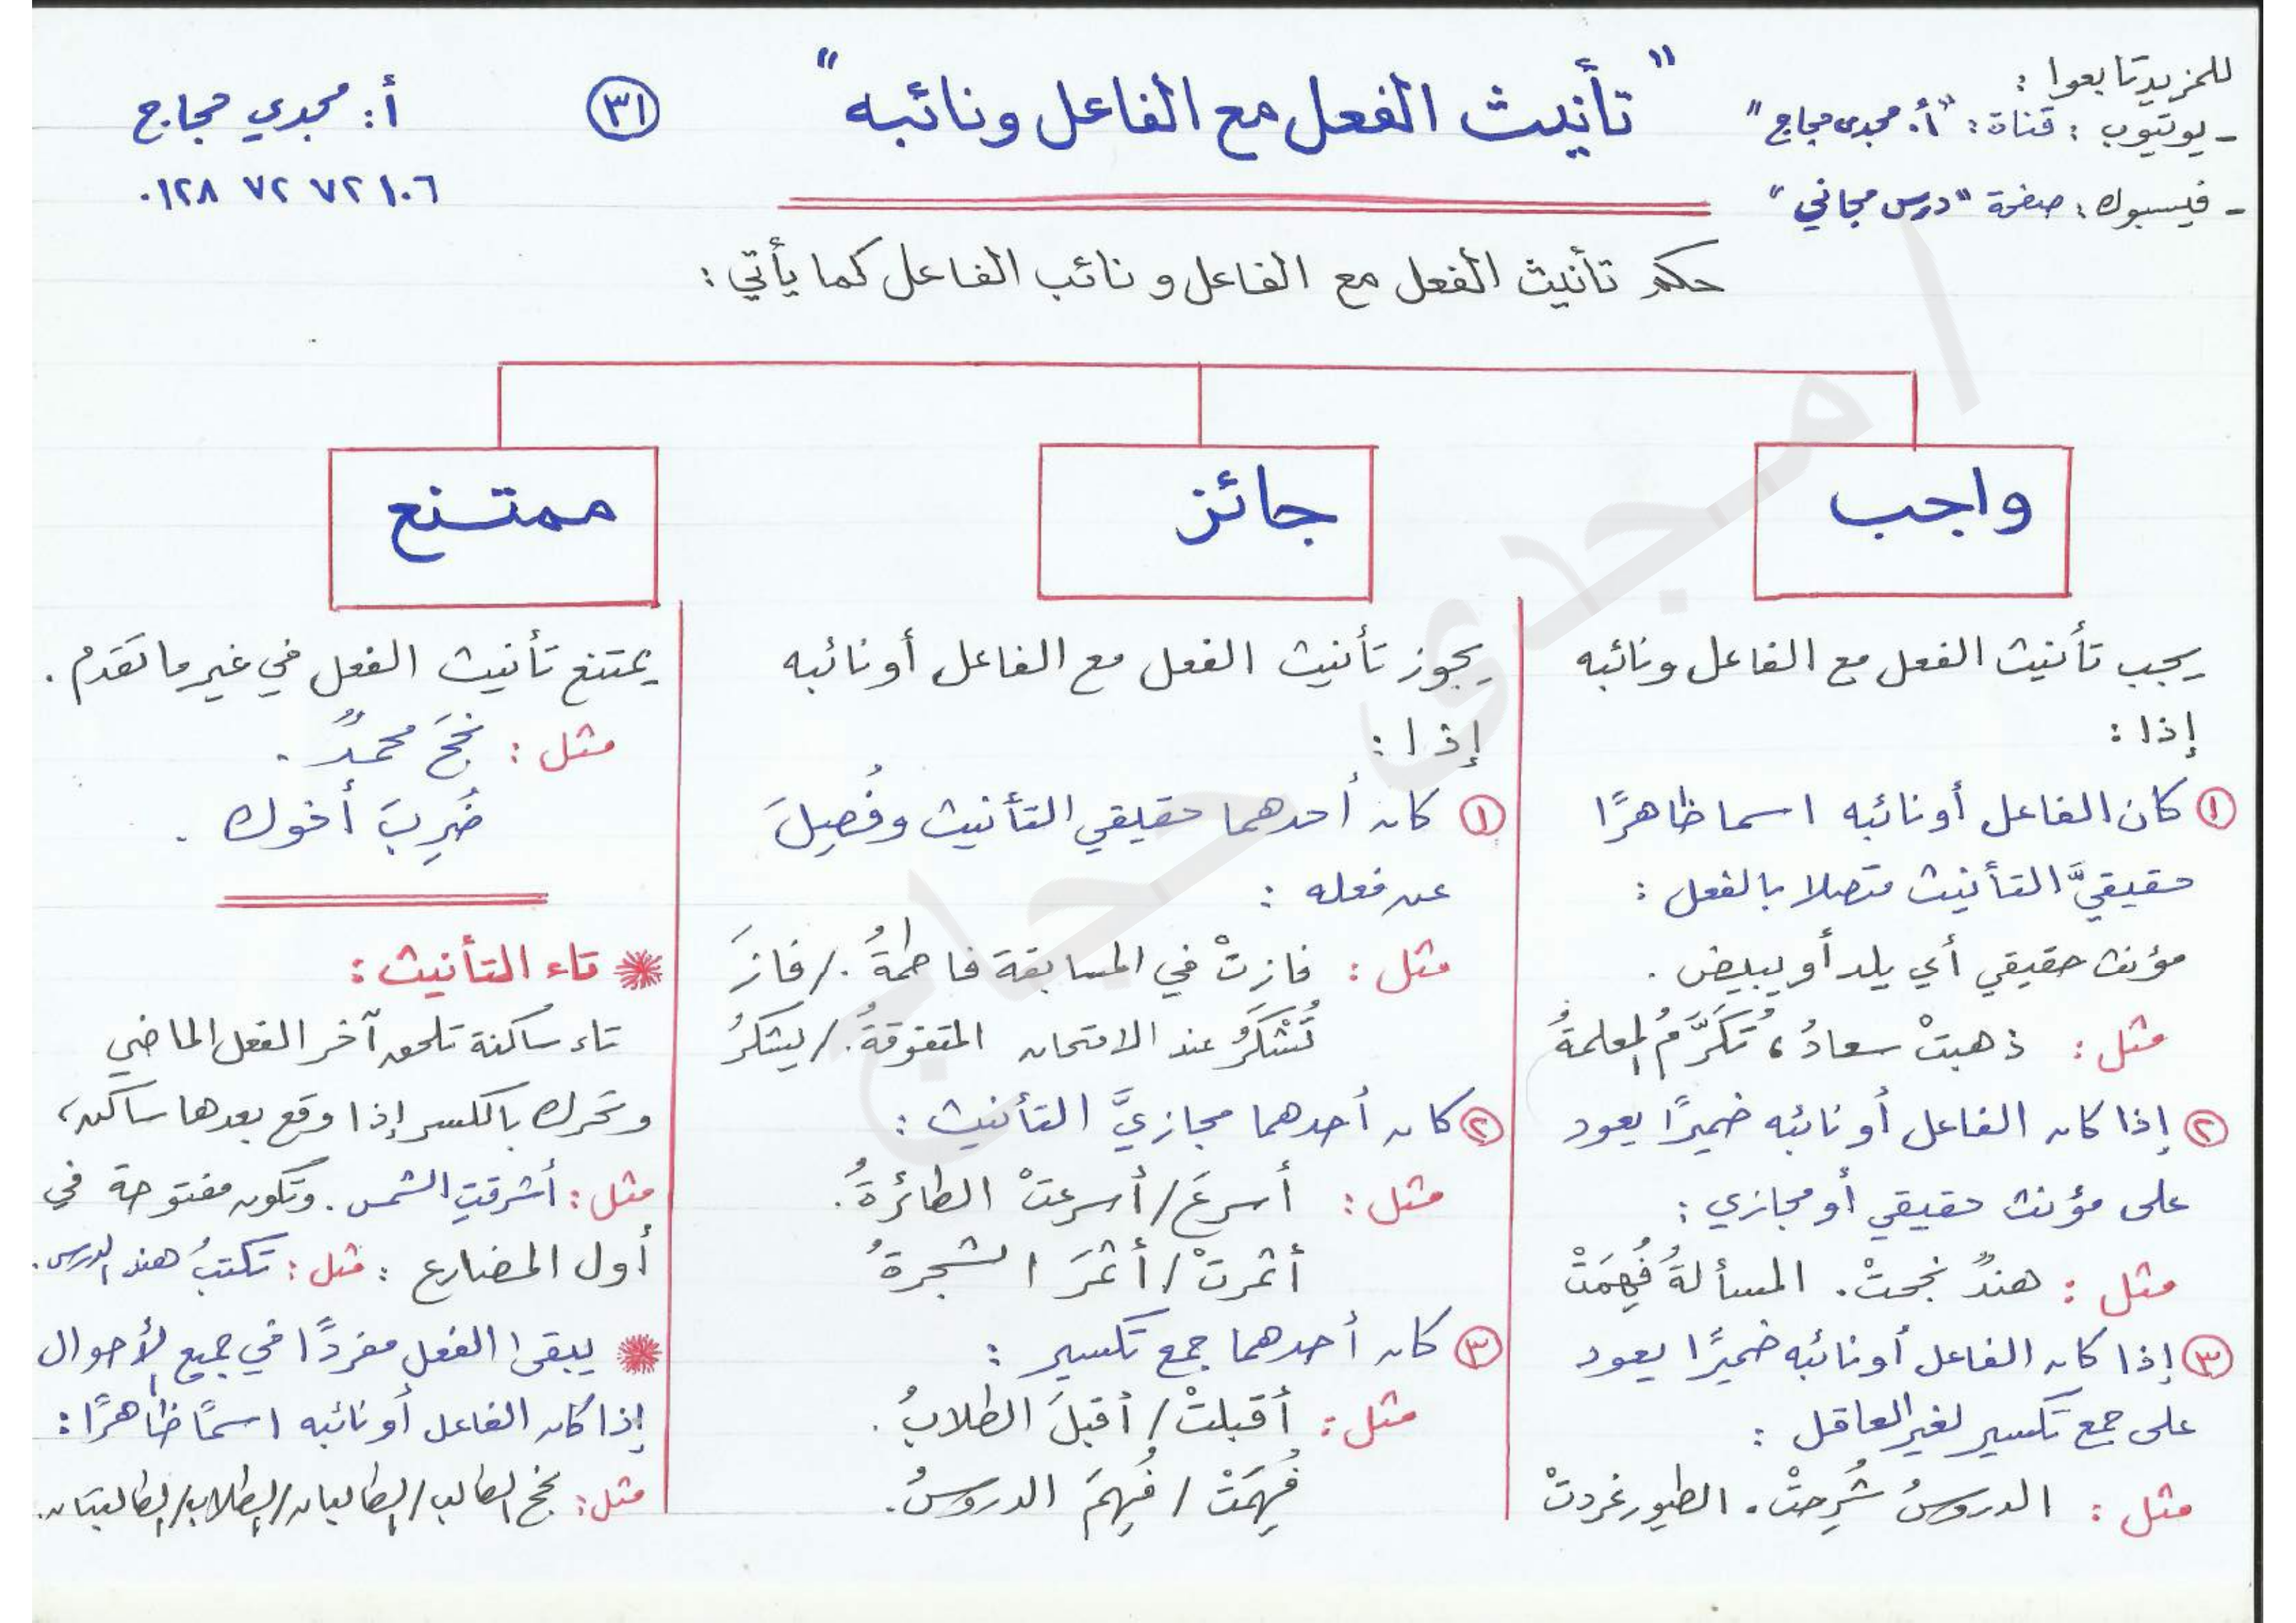 للمزيد تابعوا :
- يوتيوب : قناة : "أ. مجدى حجاج"
- فيسبوك : صفحة "درس مجاني"
" تأنيث الفعل مع الفاعل ونائبه "
٣١
أ : مجدي حجاج
٠١٢٨ ٧٢ ٧٢ ١٠٦
حكم تأنيث الفعل مع الفاعل ونائب الفاعل كما يأتي :
واجب
يجب تأنيث الفعل مع الفاعل ونائبه
إذا :
١ كان الفاعل أو نائبه اسما ظاهرًا
حقيقيَّ التأنيث متصلا بالفعل :
مؤنث حقيقي أي يلد أو يبيض .
مثل : ذهبتْ سعادُ ، تُكَرَّمُ المعلمةُ
٢ إذا كان الفاعل أو نائبه ضميرًا يعود
على مؤنث حقيقي أو مجازي :
مثل : هندٌ نجحتْ . المسألةُ فُهِمَتْ
٣ إذا كان الفاعل أو نائبه ضميرًا يعود
على جمع تكسير لغير العاقل :
مثل : الدروسُ شُرِحتْ . الطيور غردتْ
جائز
يجوز تأنيث الفعل مع الفاعل أو نائبه
إذا :
١ كان أحدهما حقيقي التأنيث وفُصِلَ
عن فعله :
مثل : فازتْ في المسابقة فاطمةُ . / فازَ
تُشْكَرُ عند الامتحان المتفوقةُ . / يشكرُ
٢ كان أحدهما مجازيَّ التأنيث :
مثل : أسرعَ / أسرعتْ الطائرةُ .
أثمرتْ / أثمرَ الشجرةُ
٣ كان أحدهما جمع تكسير :
مثل : أقبلتْ / أقبلَ الطلابُ .
فُهِمَتْ / فُهِمَ الدروسُ .
ممتنع
يمتنع تأنيث الفعل في غير ما تقدم .
مثل : نجحَ محمدٌ .
ضُرِبَ أخوك .
تاء التأنيث :
تاء ساكنة تلحق آخر الفعل الماضي
وتحرك بالكسر إذا وقع بعدها ساكن ،
مثل : أشرقتِ الشمس . وتكون مفتوحة في
أول المضارع : مثل : تكتبُ هند الدرس .
يبقى الفعل مفردًا في جميع الأحوال
إذا كان الفاعل أو نائبه اسمًا ظاهرًا :
مثل : نجح الطالب / الطالبان / الطلاب / الطالبتان .
ا مجدى حجاج